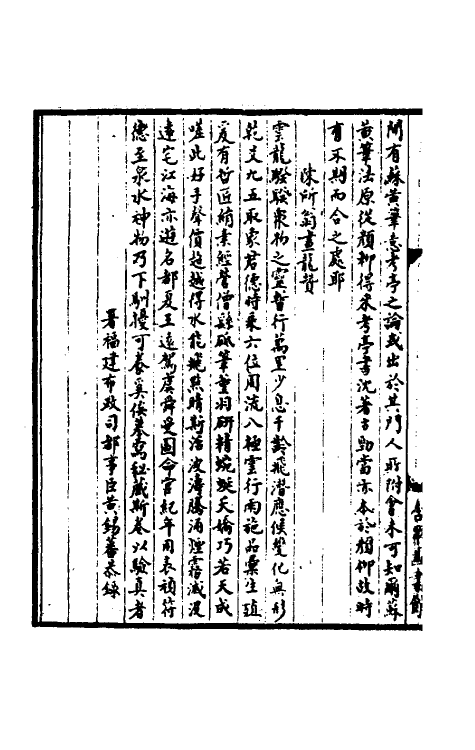 間有蘇黃筆意考亭之論或出於其門人所附會未可知爾蘇
黃筆法原從顏柳得來考亭書沈著古勁當亦本於顏柳故時
有不期而合之處耶
陳所翁畫龍贊
雲龍騤騤衆物之靈昝行萬里少息千齡飛潛應候變化無形
乾爻九五取象君德時乘六位周流八極雲行雨施品彙生殖
爰有哲匠絹素經營僧繇砥筆董羽研精蜿蜒夭嬌巧若天成
嗟此好手聲價超越得水能飛點睛斯活波濤騰涌煙霧滅沒
遠宅江海亦遊名都夏王遠駕虞舜受圖命官紀年用表禎符
德至泉水神物乃下馴擾可豢奚俟摹寫秘藏斯卷以驗真者
署福建布政司都事臣黃錫蕃恭錄